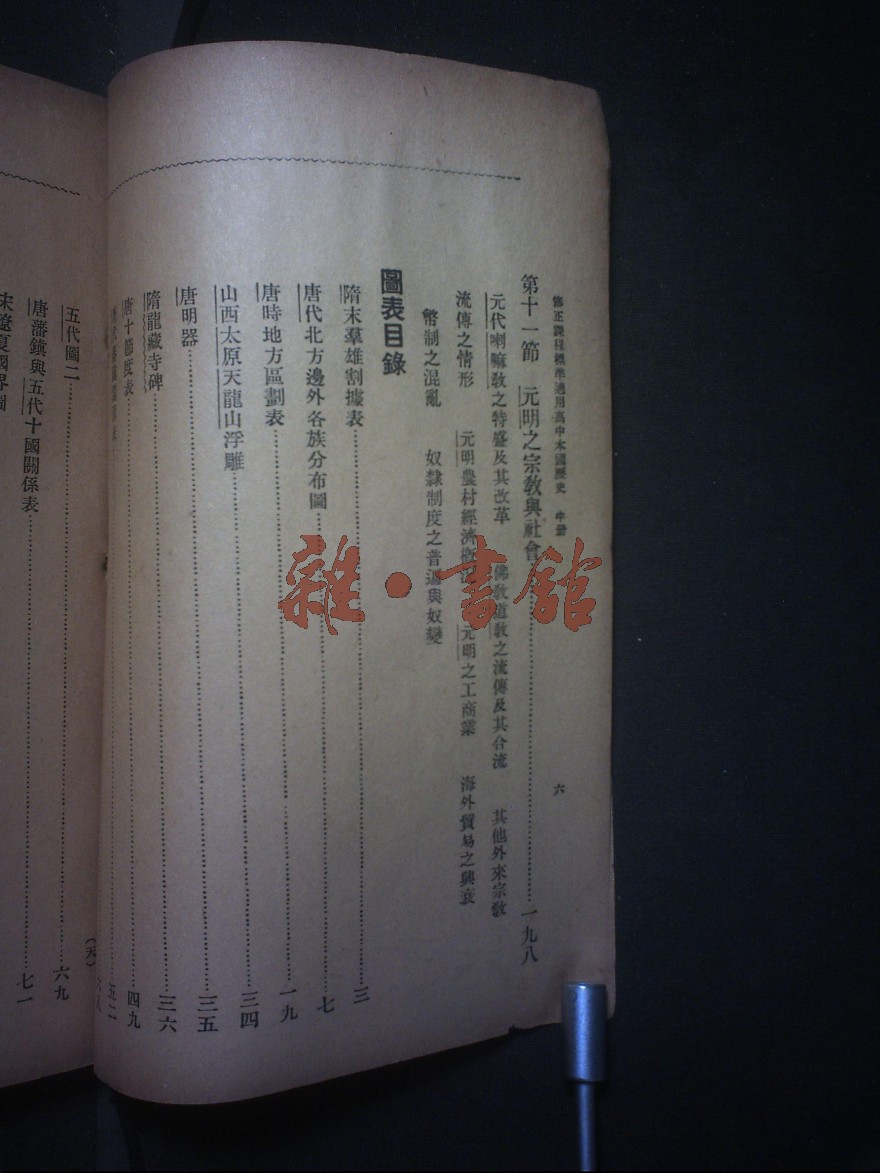 修正課程標準適用高中本國歷史 中册 六
第十一節 元明之宗教與社會 一九八
元代喇嘛教之特盛及其改革 佛教道教之流傳及其合流 其他外來宗教
流傳之情形 元明農村經濟概況 元明之工商業 海外貿易之興衰
幣制之混亂 奴隸制度之普遍與奴變
圖表目錄
隋末羣雄割據表 三
唐代北方邊外各族分布圖 七
唐時地方區劃表 一九
山西太原天龍山浮雕 三四
唐明器 三五
隋龍藏寺碑 三六
唐十節度表 四九
五二
六八
(天)
五代圖二 六九
唐藩鎮與五代十國關係表 七一
宋遼夏國界圖
雜·書館